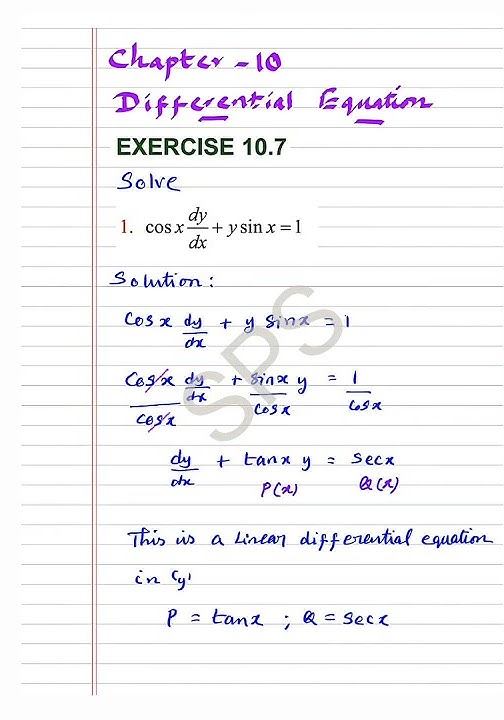 Chapter - 10
Differential Equation
EXERCISE 10.7
Solve
1. cos x dy/dx + y sin x = 1
Solution:
Cos x dy/dx + y Sinx = 1
Cosx/Cosx dy/dx + Sinx/Cosx y = 1/Cosx
dy/dx + tanx y = secx
P(x) Q(x)
This is a Linear differential equation
in 'y'
P = tanx ; Q = secx
SPS